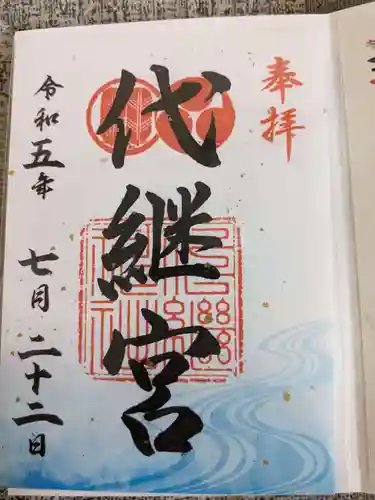 奉拝
代継宮
令和五年
七月二十二日